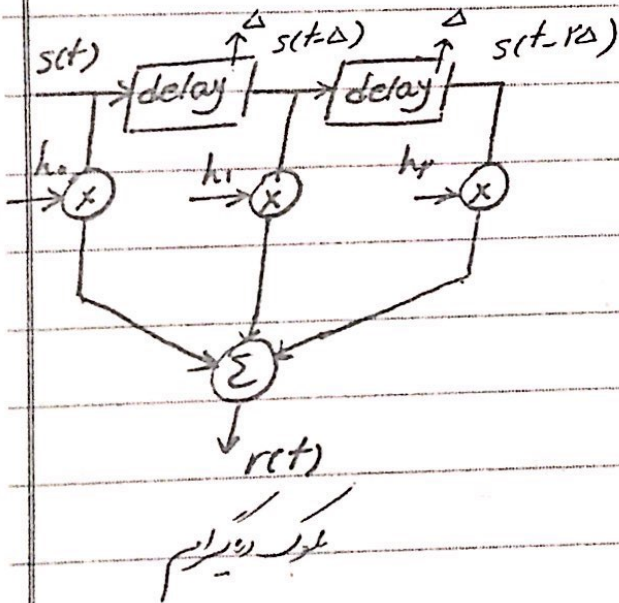 Δ Δ
s(t) s(t-Δ) s(t-۲Δ)
delay delay
h₀ × h₁ × h۲ ×
Σ
r(t)
بلوک دیاگرام